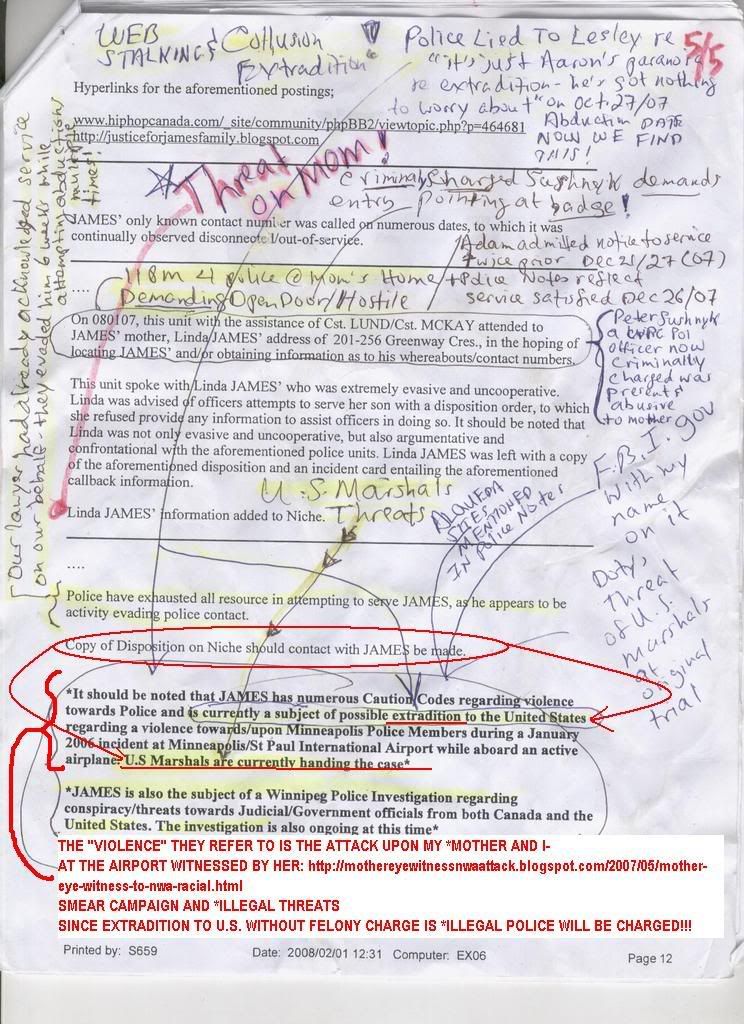 WEB
STALKING & Collusion
Extradition"
Police Lied To Lesley re
5/5
"it's just Aaron's paranoia
re extradition - he's got nothing
to worry about" on Oct. 27/07
Abduction DATE
NOW WE FIND
THIS!
Hyperlinks for the aforementioned postings;
www.hiphopcanada.com/_site/community/phpBB2/viewtopic.php?p=464681
http://justiceforjamesfamily.blogspot.com
Threat
on Mom!
Criminally Charged Sushnyk demands
entry pointing at badge!
JAMES' only known contact number was called on numerous dates, to which it was
continually observed disconnected/out-of-service.
Adam admitted notice to service
twice prior Dec 21/27 (07)
....
118m 4 police @ Mom's Home + Police Notes reflect
Demanding Open Door/Hostile
service satisfied Dec 26/07
On 080107, this unit with the assistance of Cst. LUND/Cst. MCKAY attended to
JAMES' mother, Linda JAMES' address of 201-256 Greenway Cres., in the hoping of
locating JAMES' and/or obtaining information as to his whereabouts/contact numbers.
Peter Sushnyk
a
officer now
Criminally
charged was
present &
abusive
to mother
This unit spoke with Linda JAMES' who was extremely evasive and uncooperative.
Linda was advised of officers attempts to serve her son with a disposition order, to which
she refused provide any information to assist officers in doing so. It should be noted that
Linda was not only evasive and uncooperative, but also argumentative and
confrontational with the aforementioned police units. Linda JAMES was left with a copy
of the aforementioned disposition and an incident card entailing the aforementioned
callback information.
U.S. Marshals
Threats
Linda JAMES' information added to Niche.
ALQUEDA
SITES
MENTIONED
IN Police Notes
F.B.I. gov
with my
name
on it
Duty,
Threat
of U.S.
marshals
at
original
trial
Our lawyer had already acknowledged service
on our behalf - they evaded him 6 weeks while
attempting abductions
multiple
times!
....
Police have exhausted all resource in attempting to serve JAMES, as he appears to be
activity evading police contact.
Copy of Disposition on Niche should contact with JAMES be made.
*It should be noted that JAMES has numerous Caution Codes regarding violence
towards Police and is currently a subject of possible extradition to the United States
regarding a violence towards/upon Minneapolis Police Members during a January
2006 incident at Minneapolis/St Paul International Airport while aboard an active
airplane. U.S Marshals are currently handing the case*
*JAMES is also the subject of a Winnipeg Police Investigation regarding
conspiracy/threats towards Judicial/Government officials from both Canada and the
United States. The investigation is also ongoing at this time*
THE "VIOLENCE" THEY REFER TO IS THE ATTACK UPON MY *MOTHER AND I-
AT THE AIRPORT WITNESSED BY HER: http://mothereyewitnessnwaattack.blogspot.com/2007/05/mother-
eye-witness-to-nwa-racial.html
SMEAR CAMPAIGN AND *ILLEGAL THREATS
SINCE EXTRADITION TO U.S. WITHOUT FELONY CHARGE IS *ILLEGAL POLICE WILL BE CHARGED!!!
Printed by: S659
Date: 2008/02/01 12:31 Computer: EX06
Page 12